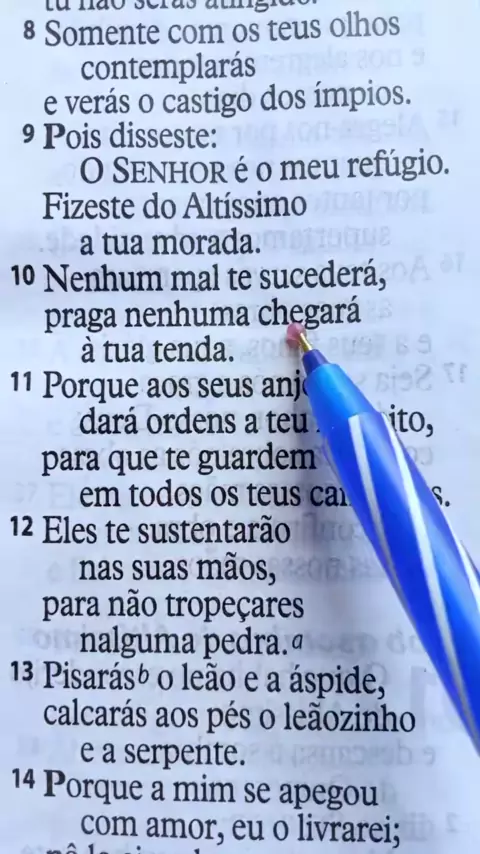 tu não serás atingido.
8 Somente com os teus olhos
contemplarás
e verás o castigo dos ímpios.
9 Pois disseste:
O SENHOR é o meu refúgio.
Fizeste do Altíssimo
a tua morada.
10 Nenhum mal te sucederá,
praga nenhuma chegará
à tua tenda.
11 Porque aos seus
dará ordens a teu
para que te guardem
em todos os teus
12 Eles te sustentarão
nas suas mãos,
para não tropeçares
nalguma pedra.a
13 Pisarásb o leão e a áspide,
calcarás aos pés o leãozinho
e a serpente.
14 Porque a mim se apegou
com amor, eu o livrarei;